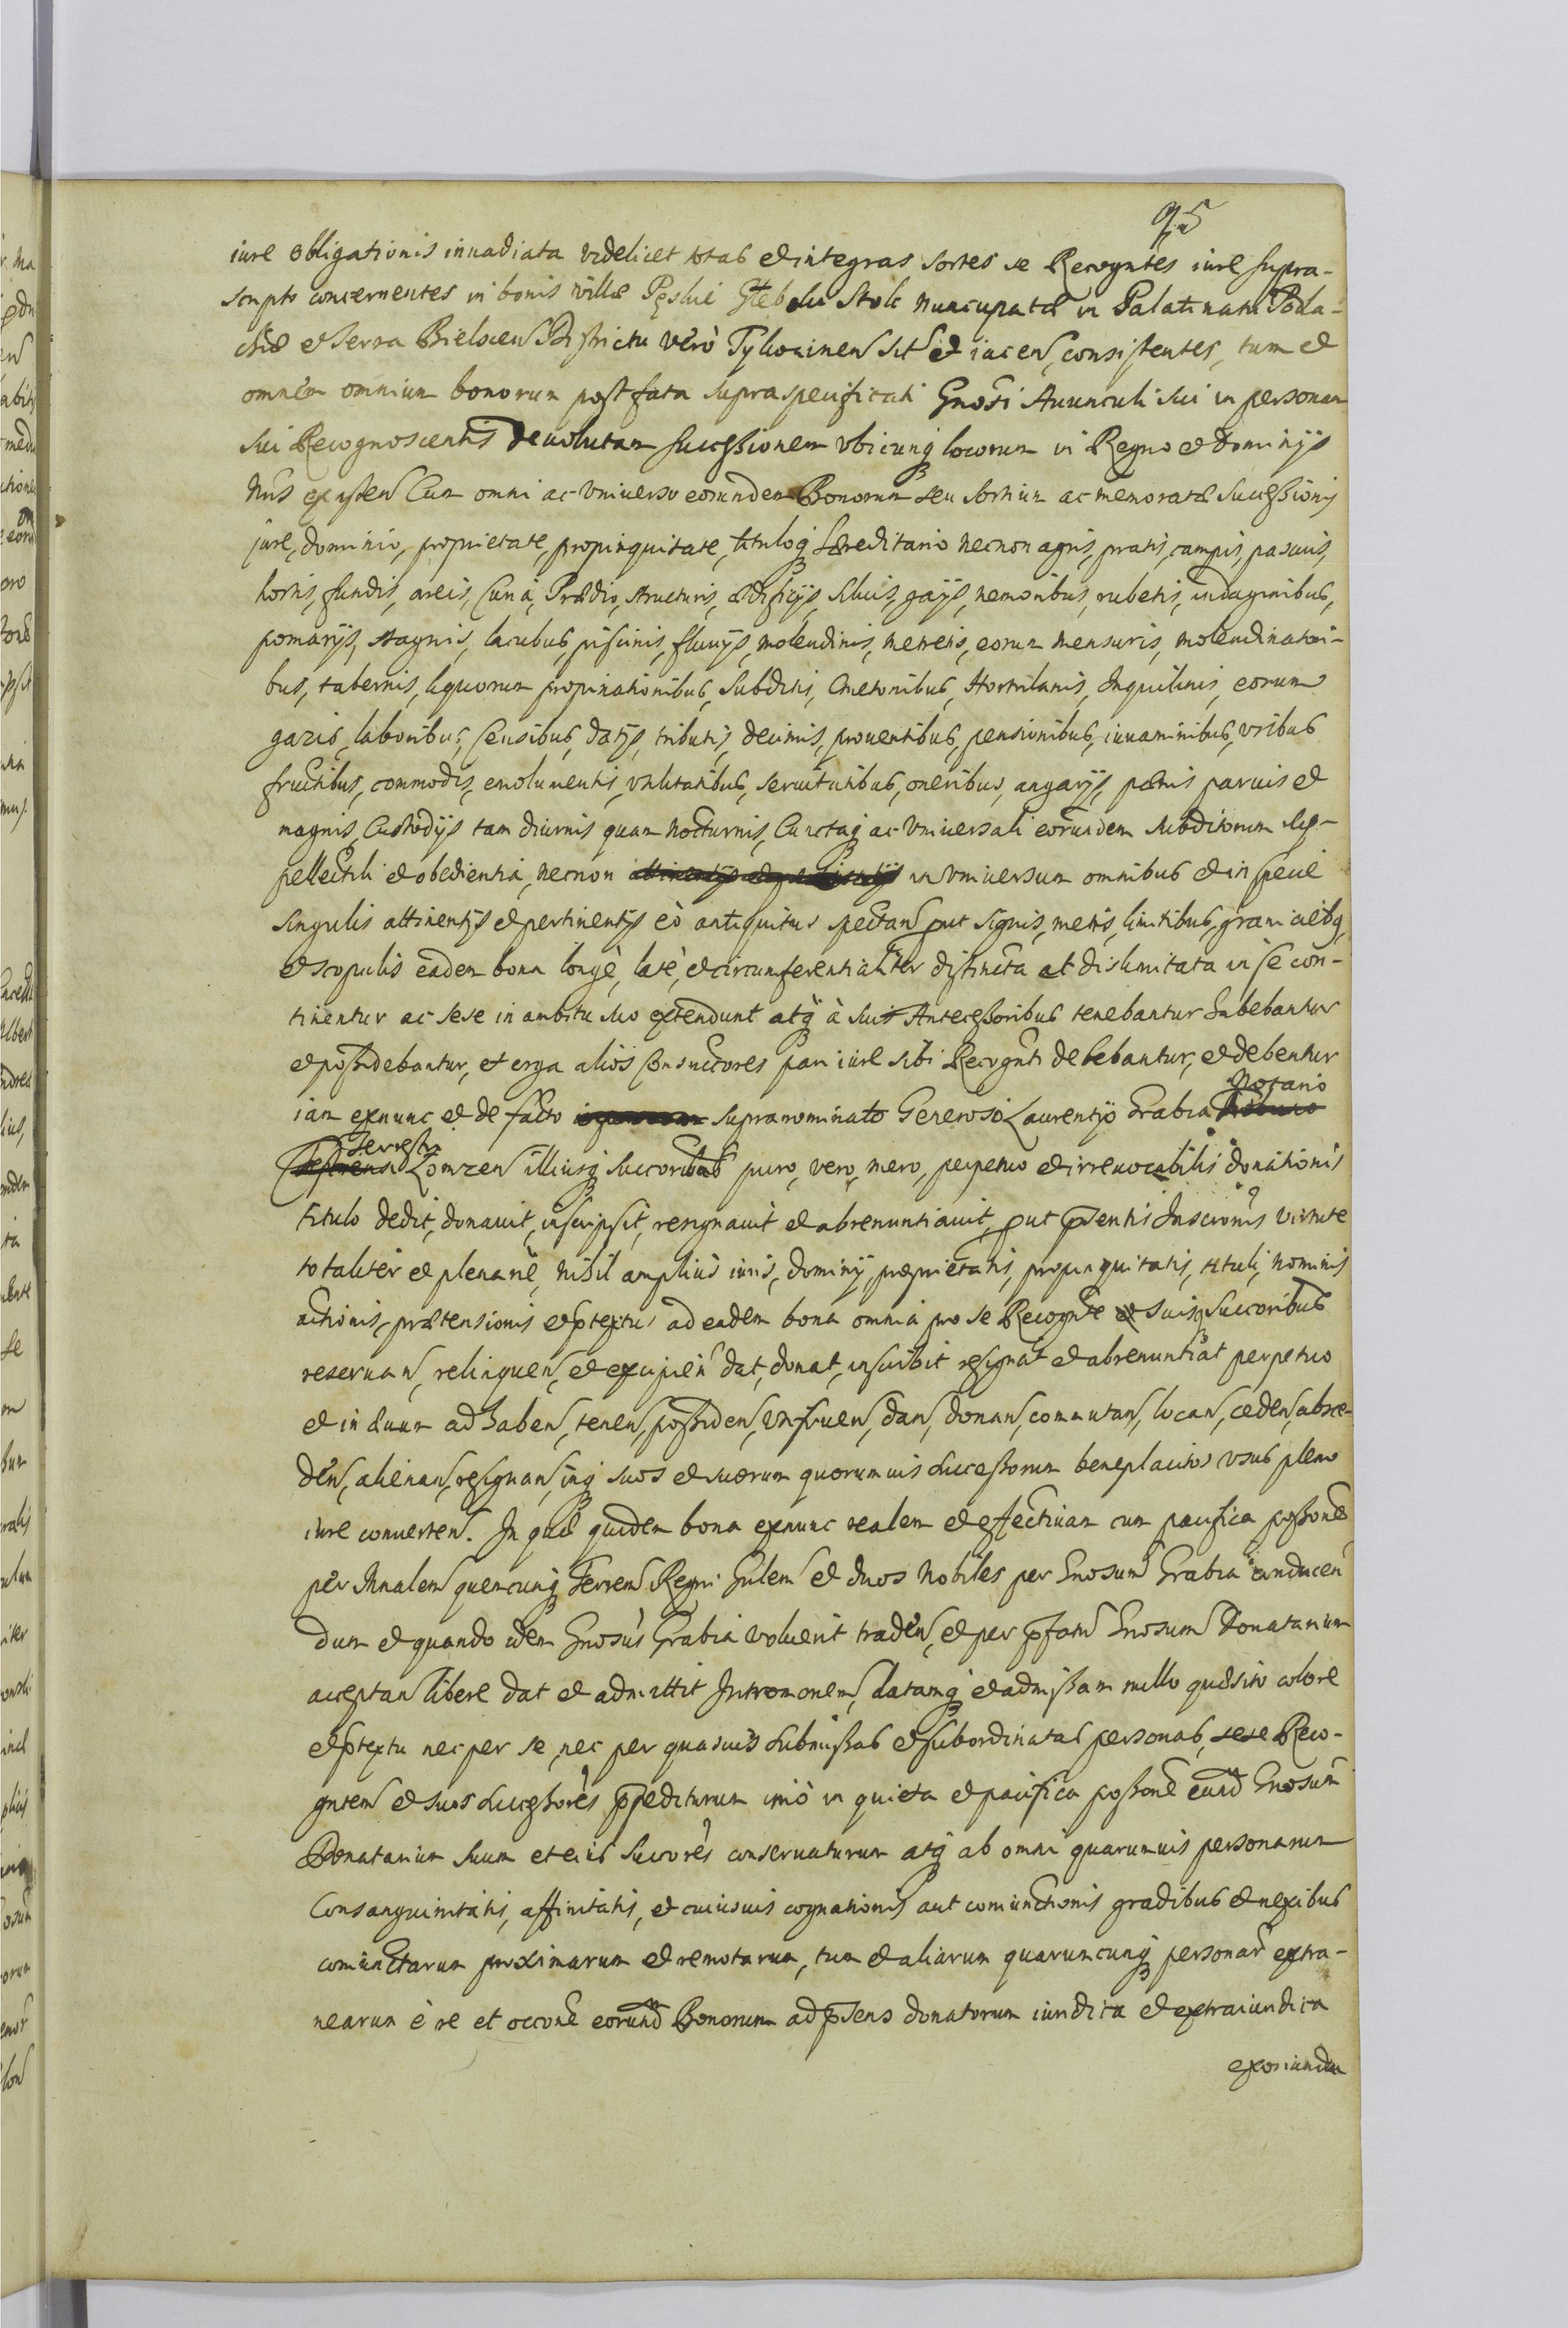 95
iure obligationis inuadiata videlicet totas et integras sortes se Recogntes iure supra-
scripto concernentes in bonis villæ Pęskie Głębokie Stok nuncupatæ in Palatinatu Podla-
chiæ et Terra Bielscen Districtu vero Tykocinen sit et iacen, consistentes, tum et
omnem omnium bonorum post fata supraspecificati Gnosi Auunculi sui in personam
sui Recognoscentis deuolutam successionem vbicunq locorum in Regno et Dominijs
hius existen Cum omni ac vniuerso eorundem Bonorum seu sortium ac memoratæ successionis
jure, dominio, proprietate, propinquitate, tituloq hæreditario necnon agris, pratis, campis, pascuis,
hortis, fundis, areis, Curia, Prædio, structuris, ædificijs, siluis, gajs, nemoribus, rubetis, indaginibus,
pomarijs, stagnis, lacubus, piscinis, fluuijs, molendinis, meretis, eorum mensuris, molendinatori-
bus, tabernis, liquorum propinationibus, Subditis, Cmetonibus, Hortulanis, Inquilinis, eorum
gazis, laboribus, Censibus, datijs, tributis, decimis, prouentibus, pensionibus, iuuaminibus, vsibus
fructibus, commodis, emolumentis, vtilitatibus, seruitutibus, oneribus, angarijs, pœnis paruis et
magnis, Custodijs tam diurnis quam nocturnis, Cunctaq ac vniuersali eorundem subditorum sup-
pellectili et obedientia, necnon attinentijs et pertinentijs in vniuersum omnibus et in specie
singulis attinentijs et pertinentijs eò antiquitus spectan put signis, metis, limitibus, granicieibq,
et scopulis eadem bona longè, latè, et circumferentialiter distincta et dislimitata in se con-
tinentur ac sese in ambitu suo extendunt atq à suis Antecessoribus tenebantur habebantur
et possidebantur, et erga alios Consuccores pari iure sibi Recognti debebantur, et debentur
iam exnunc et de facto supranominato Generoso Laurentio Grabia Notario
Terrestri Łomzen illiusq Succoribus puro, vero, mero, perpetuo et irreuocabilis donationis
titulo dedit, donauit, inscripsit, resignauit et abrenuntiauit, put psentis Inscrionis virtute
totaliter et plenarie, nihil amplius iuris, dominij, proprietatis, propinquitatis, tituli, nominis
actionis, prætensionis et ptextus ad eadem bona omnia pro se Recognte et suisq Succoribus
reseruan, relinquen, et excipien dat, donat, inscribit resignat et abrenuntiat perpetuo
et in æuum ad haben, tenen, possiden, vtifruen, dan, donan, commutan, locan, ceden, absce-
den, alienan, resignan, inq suos et suorum quorumuis successorum beneplacitos vsus pleno
iure conuerten. In quæ quidem bona exnunc realem et effectiuam cum pacifica possone
per Mnalem quemcunq Terren Regni Gnlem et duos Nobiles per Gnosum Grabia adducen
dum et quando idem Gnosus Grabia voluerit traden, et per pfatum Gnosum Donatarium
acceptan libere dat et admittit Intromonem, datamq et admissam nullo quæsito colore
et ptextu nec per se, nec per quasuis submissas et subordinatas personas, sese Reco-
gntem et suos successores ppediturum imò in quieta et pacifica possone eund Gnosum
Donatarium suum et eius Succores conseruaturum atq ab omni quarumuis personarum
Consanguinitatis, affinitatis, et cuiusuis cognationis aut coniunctionis gradibus et nexibus
coniunctarum proximarum et remotarum, tum et aliarum quaruncunq personar extra-
nearum è re et occone eorund Bonorum ad psens donatorum iuridica et extraiuridica
exoriunda